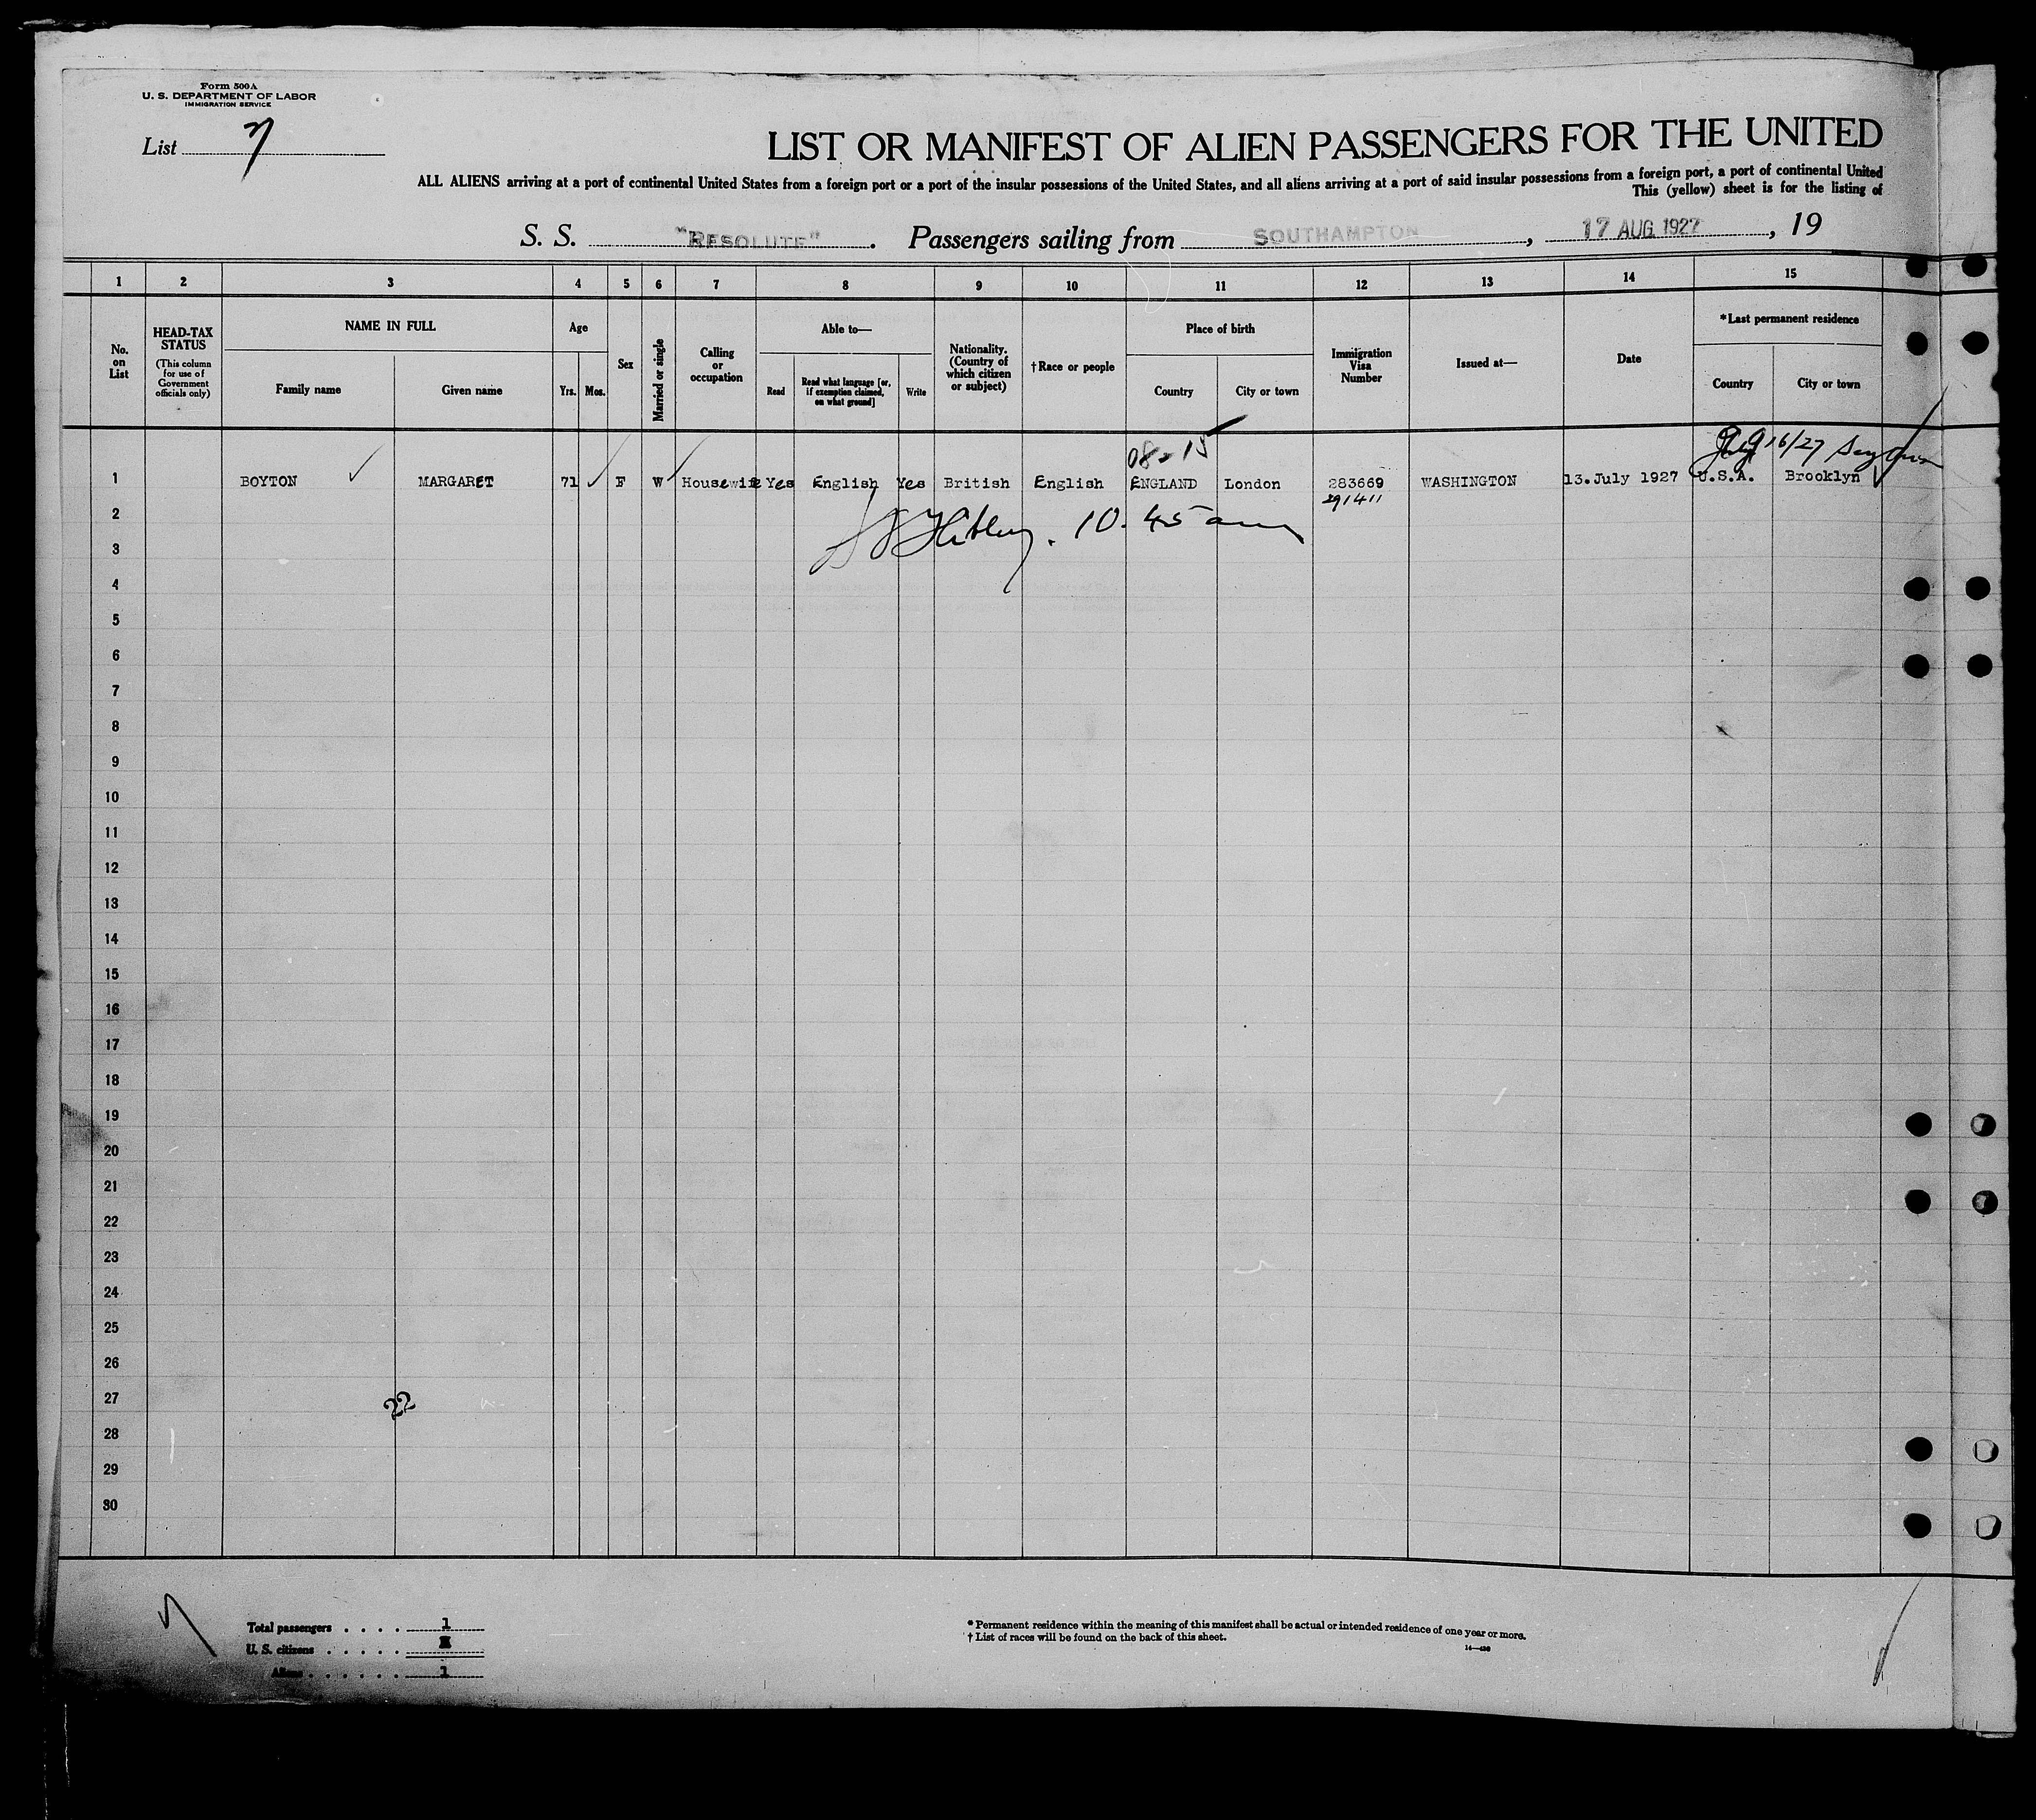 Form 500A
U. S. DEPARTMENT OF LABOR
IMMIGRATION SERVICE
List 7
LIST OR MANIFEST OF ALIEN PASSENGERS FOR THE UNITED
ALL ALIENS arriving at a port of continental United States from a foreign port or a port of the insular possessions of the United States, and all aliens arriving at a port of said insular possessions from a foreign port, a port of continental United
This (yellow) sheet is for the listing of
S. S. "RESOLUTE". Passengers sailing from SOUTHAMPTON, 17 AUG 1927, 19
1 2 3 4 5 6 7 8 9 10 11 12 13 14 15
No. on List
HEAD-TAX STATUS
(This column for use of Government officials only)
NAME IN FULL
Family name
Given name
Age
Yrs.
Mos.
Sex
Married or single
Calling or occupation
Able to—
Read
Read what language [or, if exemption claimed, on what ground]
Write
Nationality. (Country of which citizen or subject)
†Race or people
Place of birth
Country
City or town
Immigration Visa Number
Issued at—
Date
*Last permanent residence
Country
City or town
08-15
16/27
1 BOYTON MARGARET 71 F W Housewife Yes English Yes British English ENGLAND London 283669 WASHINGTON 13.July 1927 U.S.A. Brooklyn
291411
2
10.45 am
3
4
5
6
7
8
9
10
11
12
13
14
15
16
17
18
19
20
21
22
23
24
25
26
27
22
28
29
30
7
Total passengers . . . . 1
U. S. citizens . . . . .
Aliens . . . . . . 1
* Permanent residence within the meaning of this manifest shall be actual or intended residence of one year or more.
† List of races will be found on the back of this sheet.